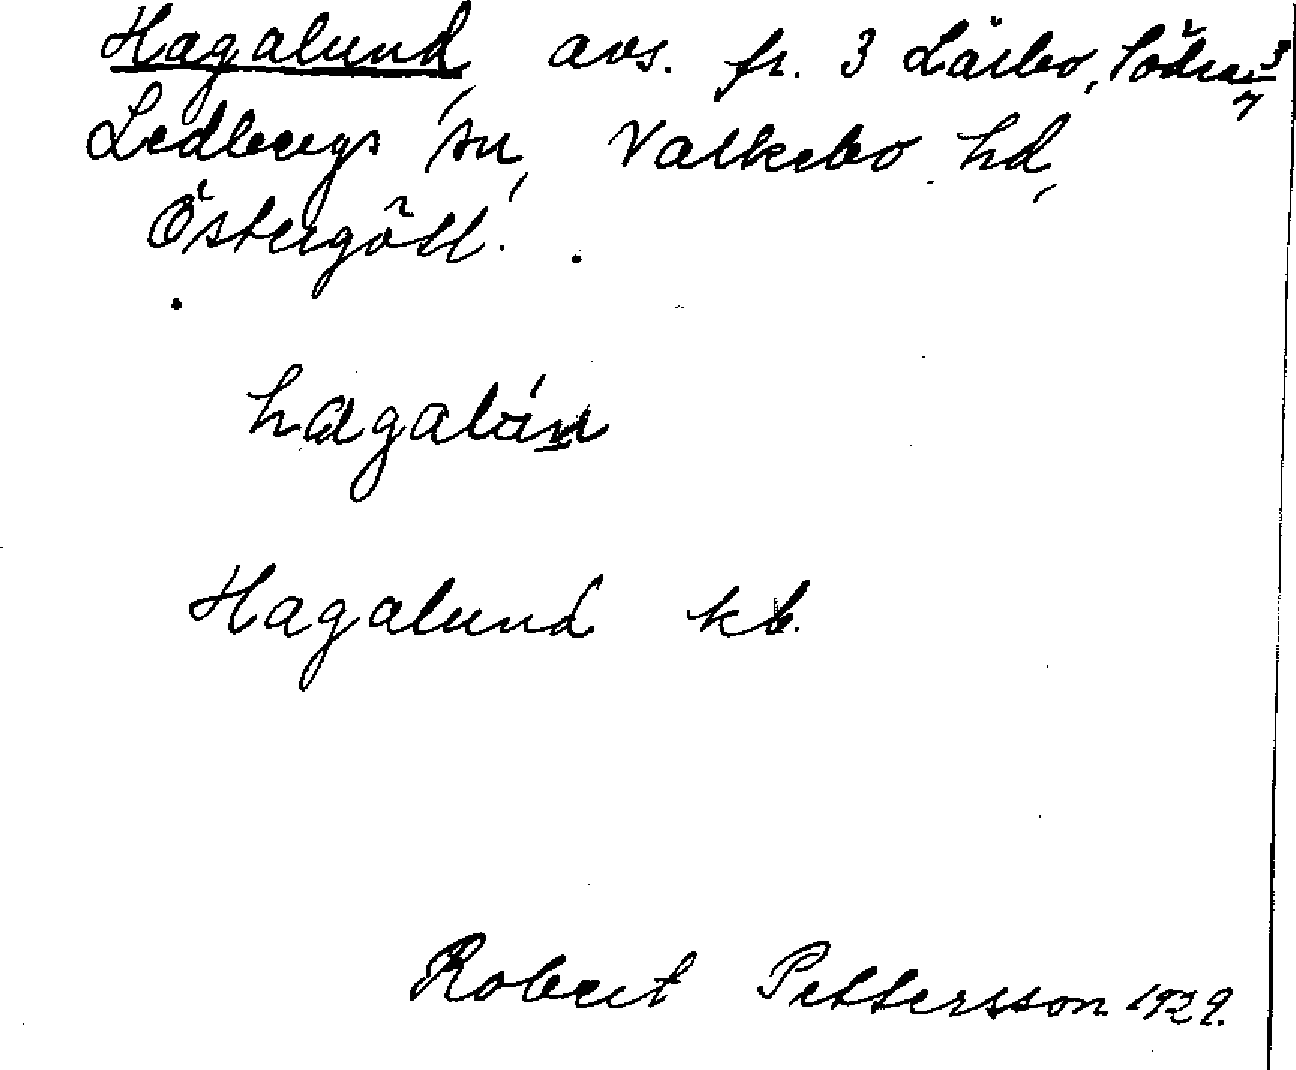 Hagalund, avs. fr. 3 Lärbo, Södra 3/7
Ledbergs sn, Valkebo hd,
Östergötl.
hagalún
Hagalund kb.
Robert Pettersson 1929.